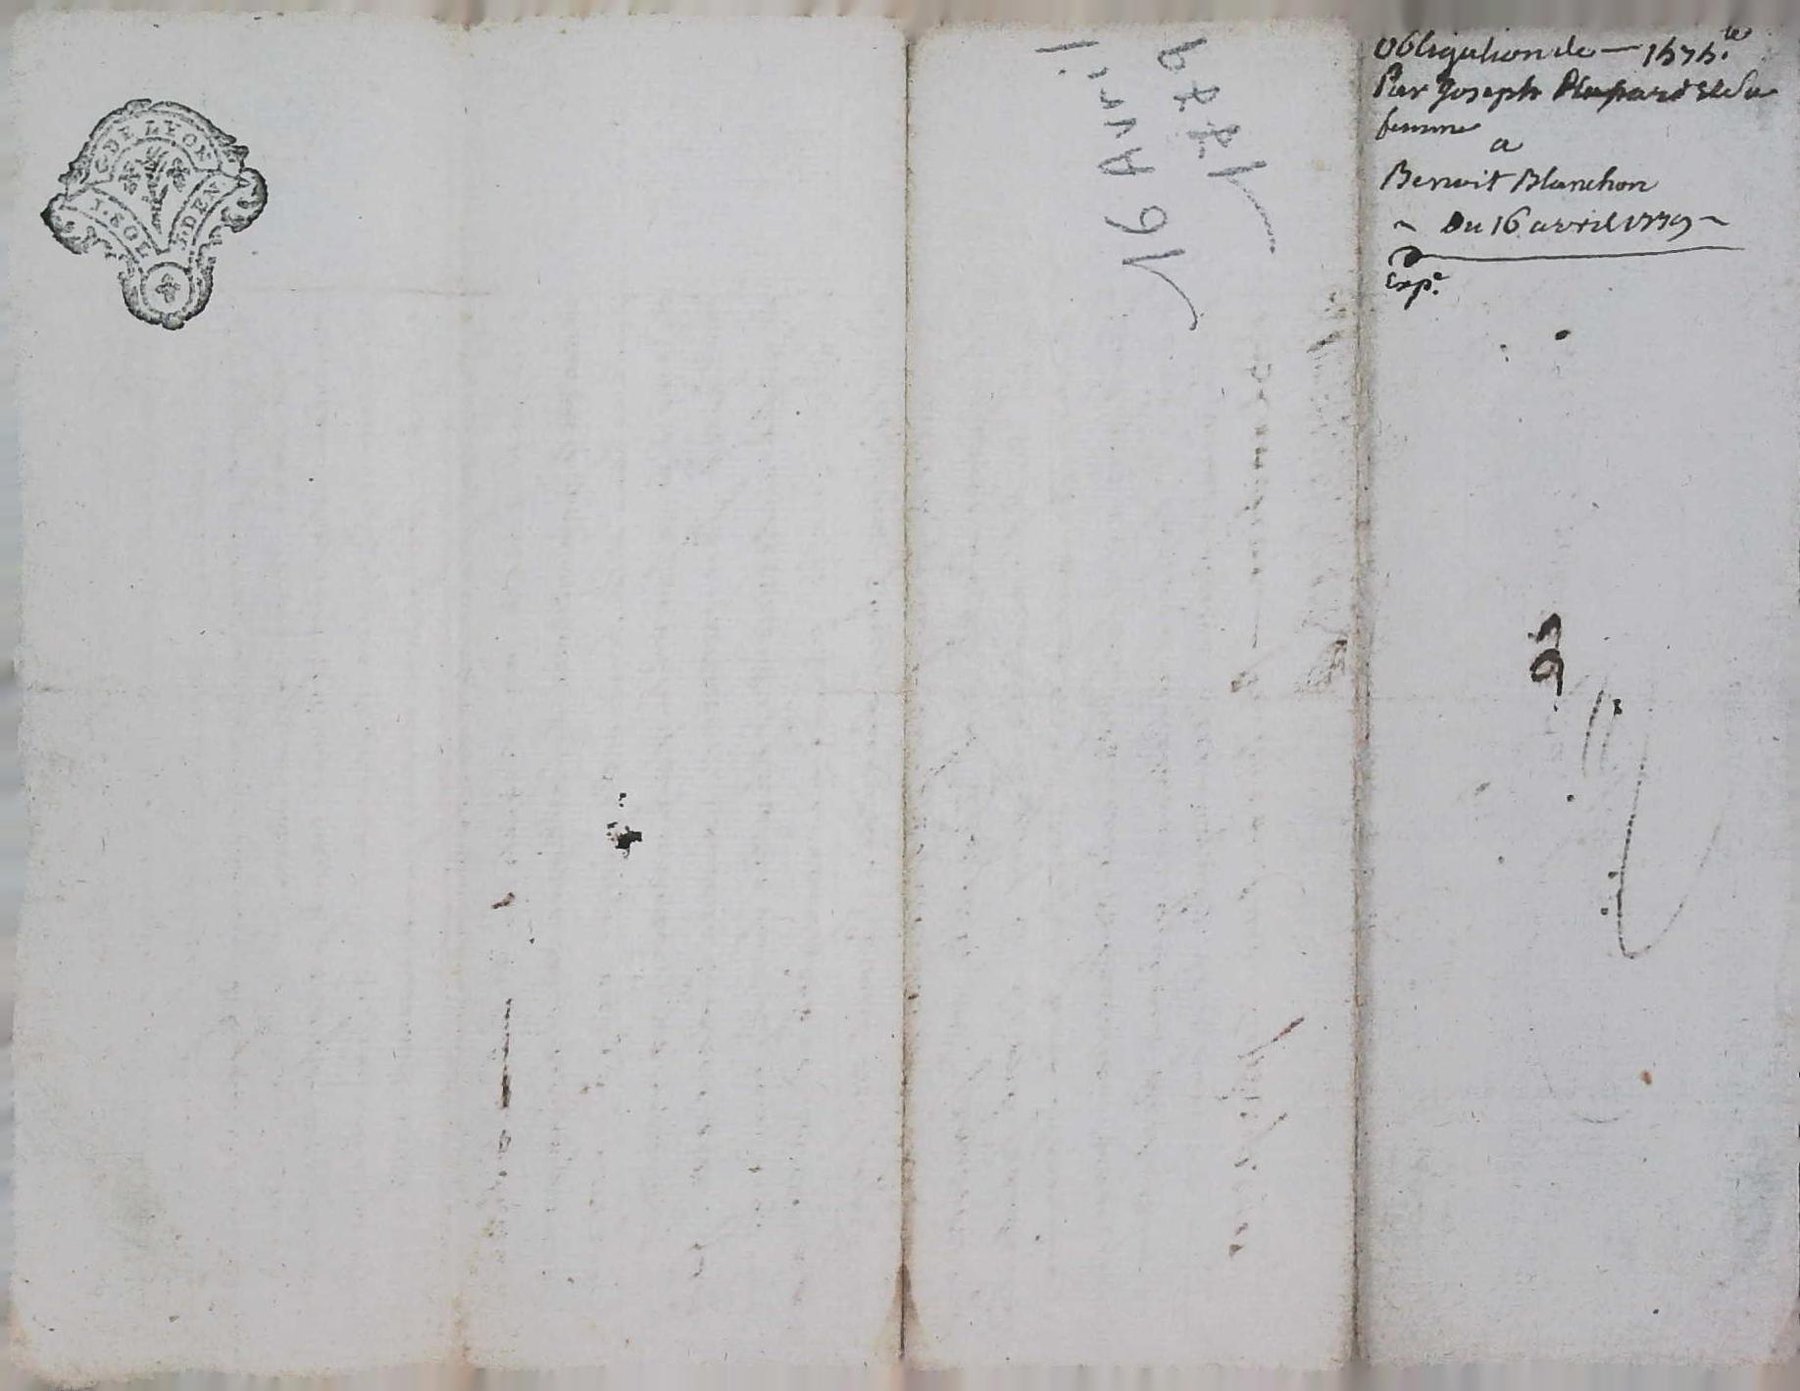 G. DE LYON
1. SOL
DEN
16 Avril
1779
Obligation de — 1575.te
Par Joseph et Sa
femme
a
Benoit Blanchon
~ Du 16 avril 1779 ~
Exp.e